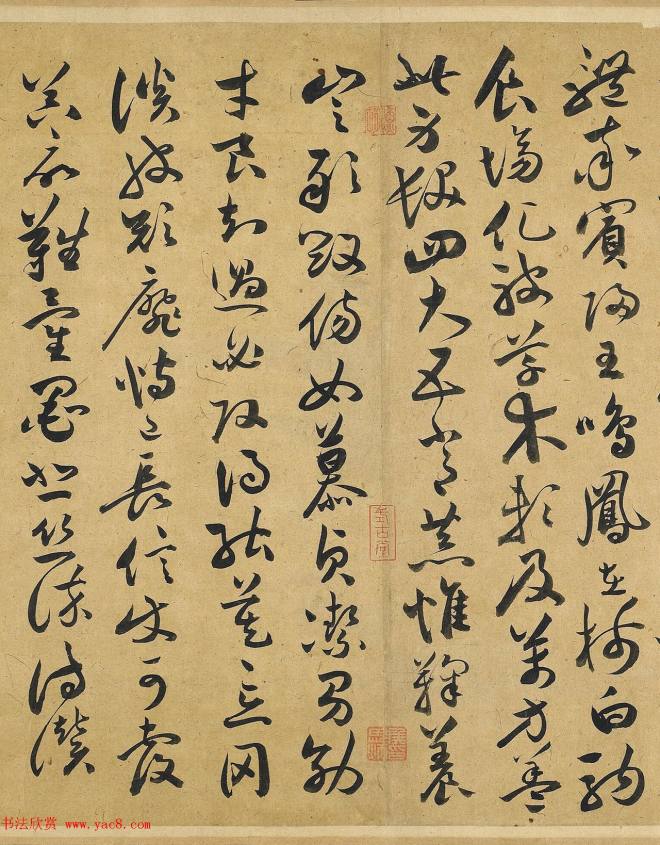 體率賓歸王鳴鳳在樹白駒
食場化被草木賴及萬方蓋
此身髮四大五常恭惟鞠養
豈敢毀傷女慕貞潔男效
才良知過必改得能莫忘罔
談彼短靡恃己長信使可覆
器欲難量墨悲絲染詩讚
书法欣赏 www.yac8.com